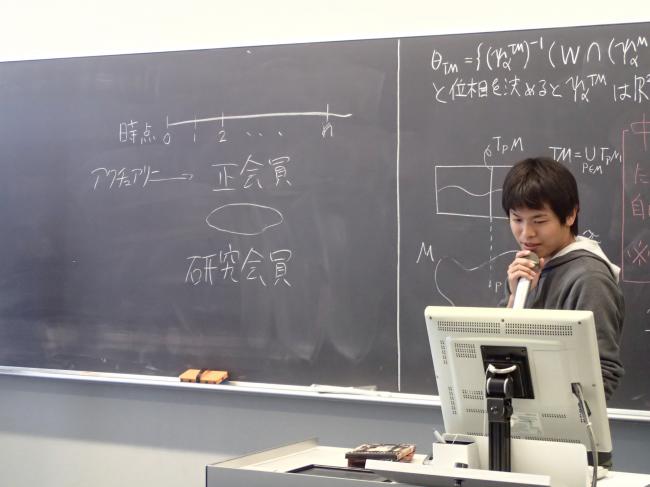 時点 0 1 2 . . . n
アクチュアリー → 正会員
研究会員
θTM = {(ψα^TM)^-1 (W ∩ (ψα^M
と位相を決めると ψα^TM は R^2
TPM TM = ∪ TPM
P∈M
中
た
自
M
P